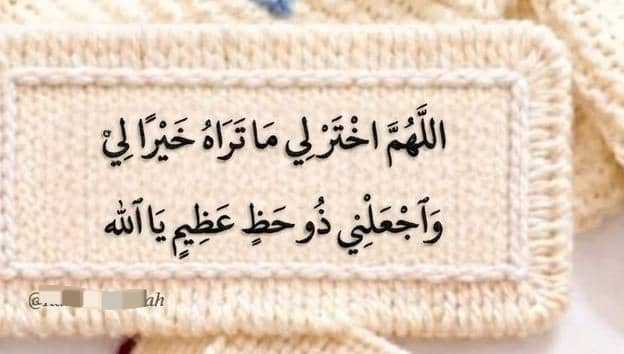 اللَّهُمَّ اخْتَرْ لِي مَا تَرَاهُ خَيْرًا لِيْ
وَٱجْعَلْنِي ذُو حَظٍ عَظِيمٍ يَا ٱللّٰه